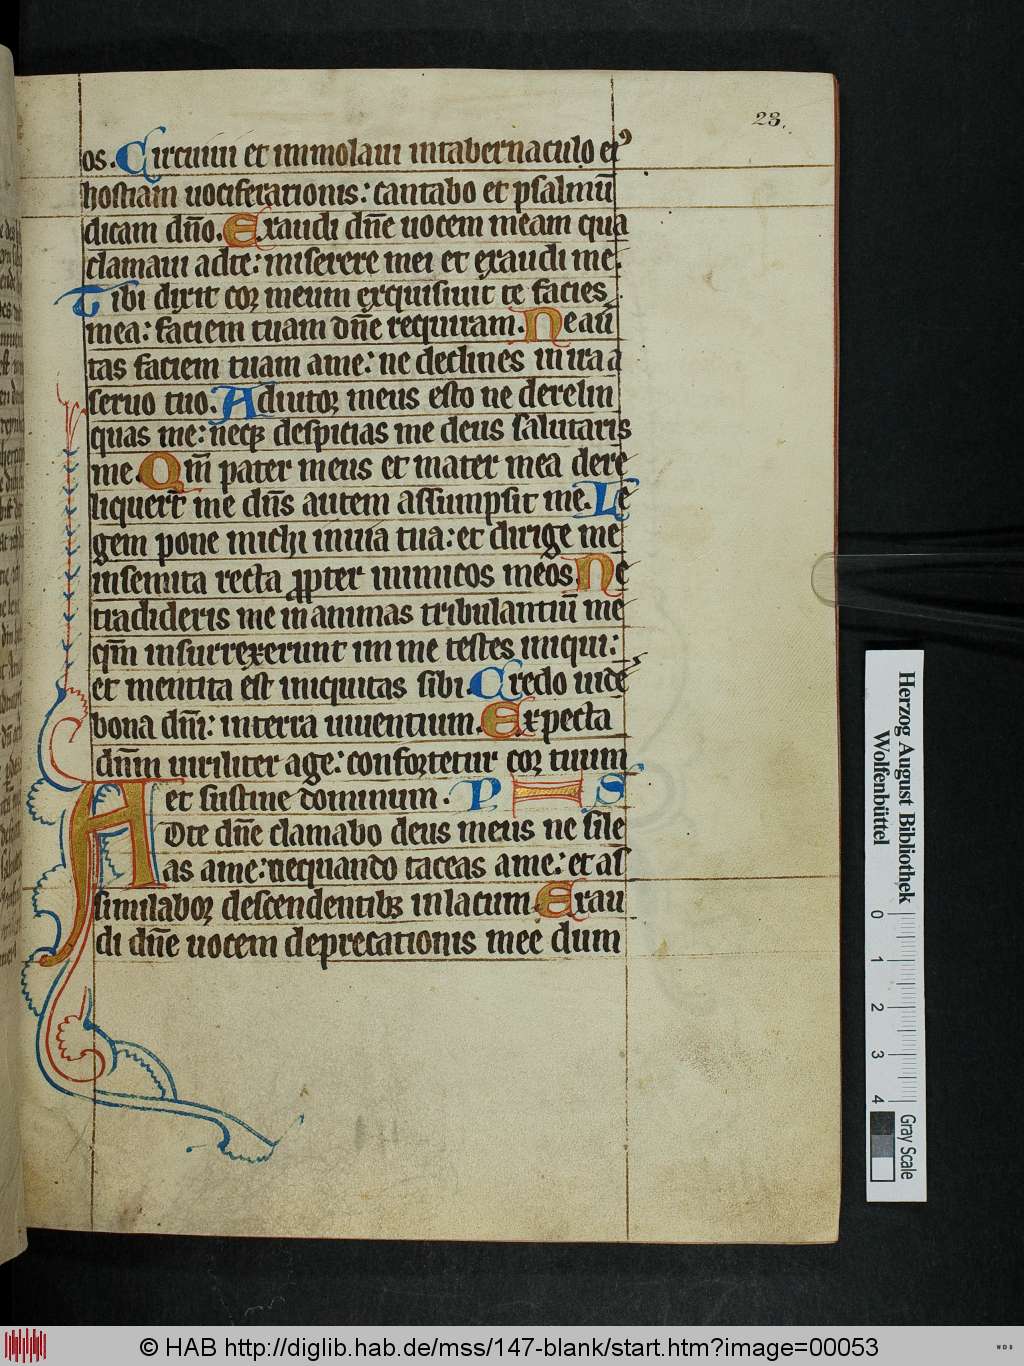 23.
os. Circuiui et immolaui intabernaculo eiꝰ
hostiam uociferationis: cantabo et psalmū
dicam dn̄o. Exaudi dn̄e uocem meam qua
clamaui adte: miserere mei et exaudi me.
Tibi dixit coꝛ meum exquisiuit te facies
mea: faciem tuam dn̄e requiram. Neaū
tas faciem tuam ame: ne declines inira a
seruo tuo. Adiutoꝛ meus esto ne derelin
quas me: neqꝫ despicias me deus salutaris
me. Qm̄ pater meus et mater mea dere
liquert̄ me dn̄s autem assumpsit me. Le
gem pone michi inuia tua: et dirige me
insemita recta ꝓpter inimicos meos. Ne
tradideris me inanimas tribulantiū me
qm̄ insurrexerunt in me testes iniqui:
et mentita est iniquitas sibi. Credo uide
bona dn̄i: interra uiuentium. Expecta
dn̄m uiriliter age: confoꝛtetur coꝛ tuum
et sustine dominum. P S
ADte dn̄e clamabo deus meus ne sile
as ame: nequando taceas ame: et as
similaboꝛ descendentibꝫ inlacum. Exau
di dn̄e uocem deprecationis mee dum
Herzog August Bibliothek
Wolfenbüttel
0 1 2 3 4
Gray Scale
© HAB http://diglib.hab.de/mss/147-blank/start.htm?image=00053